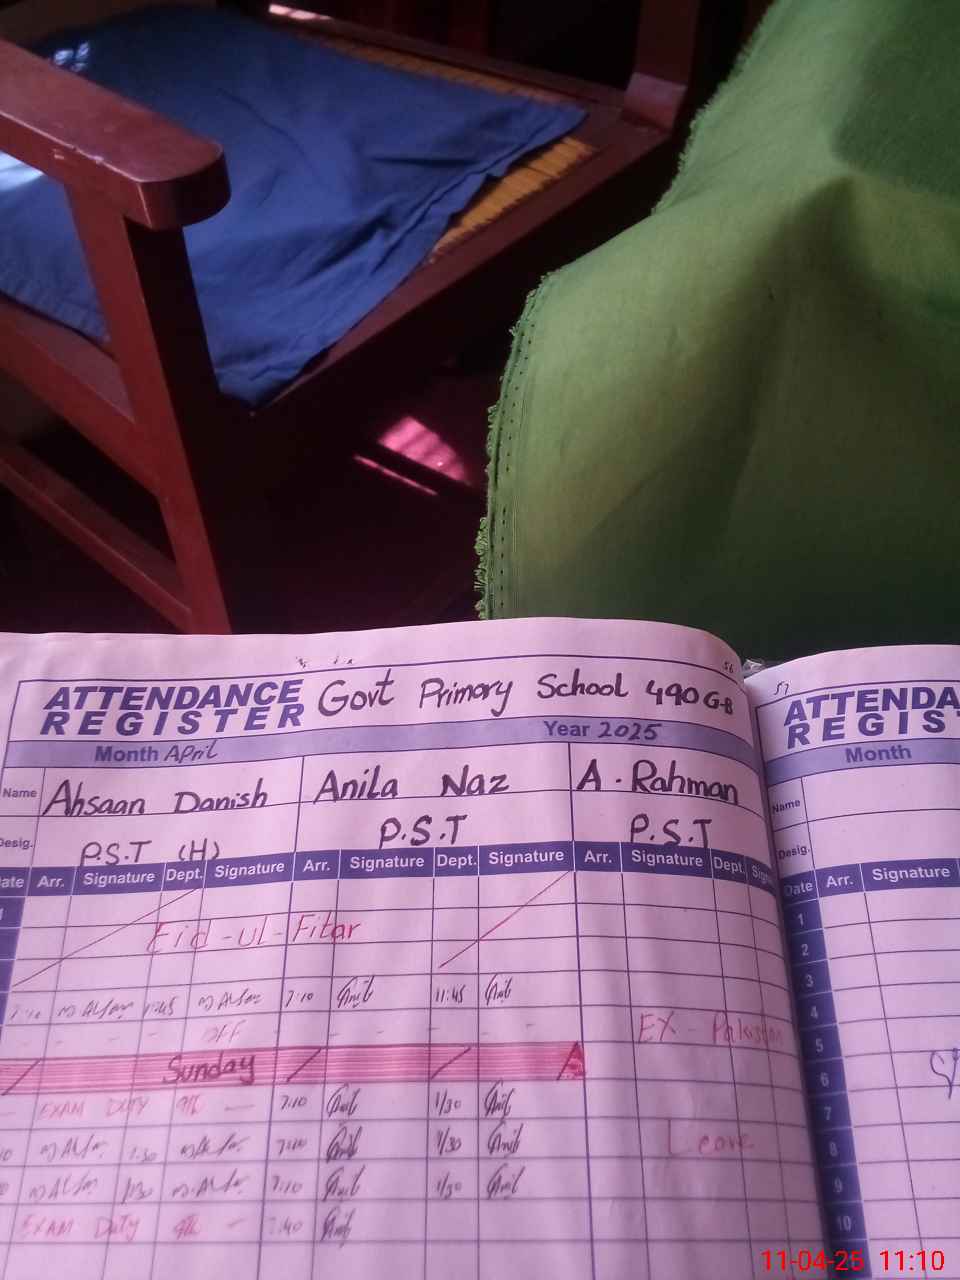 56
ATTENDANCE REGISTER Govt Primary School 490 G-B
Month April Year 2025
Name Ahsaan Danish Anila Naz A. Rahman
Desig. P.S.T (H) P.S.T P.S.T
Date Arr. Signature Dept. Signature Arr. Signature Dept. Signature Arr. Signature Dept.
Eid-ul-Fitar
7:10 11:45 7:10 11:45
OFF EX-Pakistan
Sunday
EXAM DUTY 7:10 1/30
1:30 7:10 1/30 Leave
1/30 7:10 1/30
EXAM Duty 7:40
57
ATTENDA
REGIST
Month
Name
Desig.
Date Arr. Signature
1
2
3
4
5
6
7
8
9
10
11-04-25 11:10